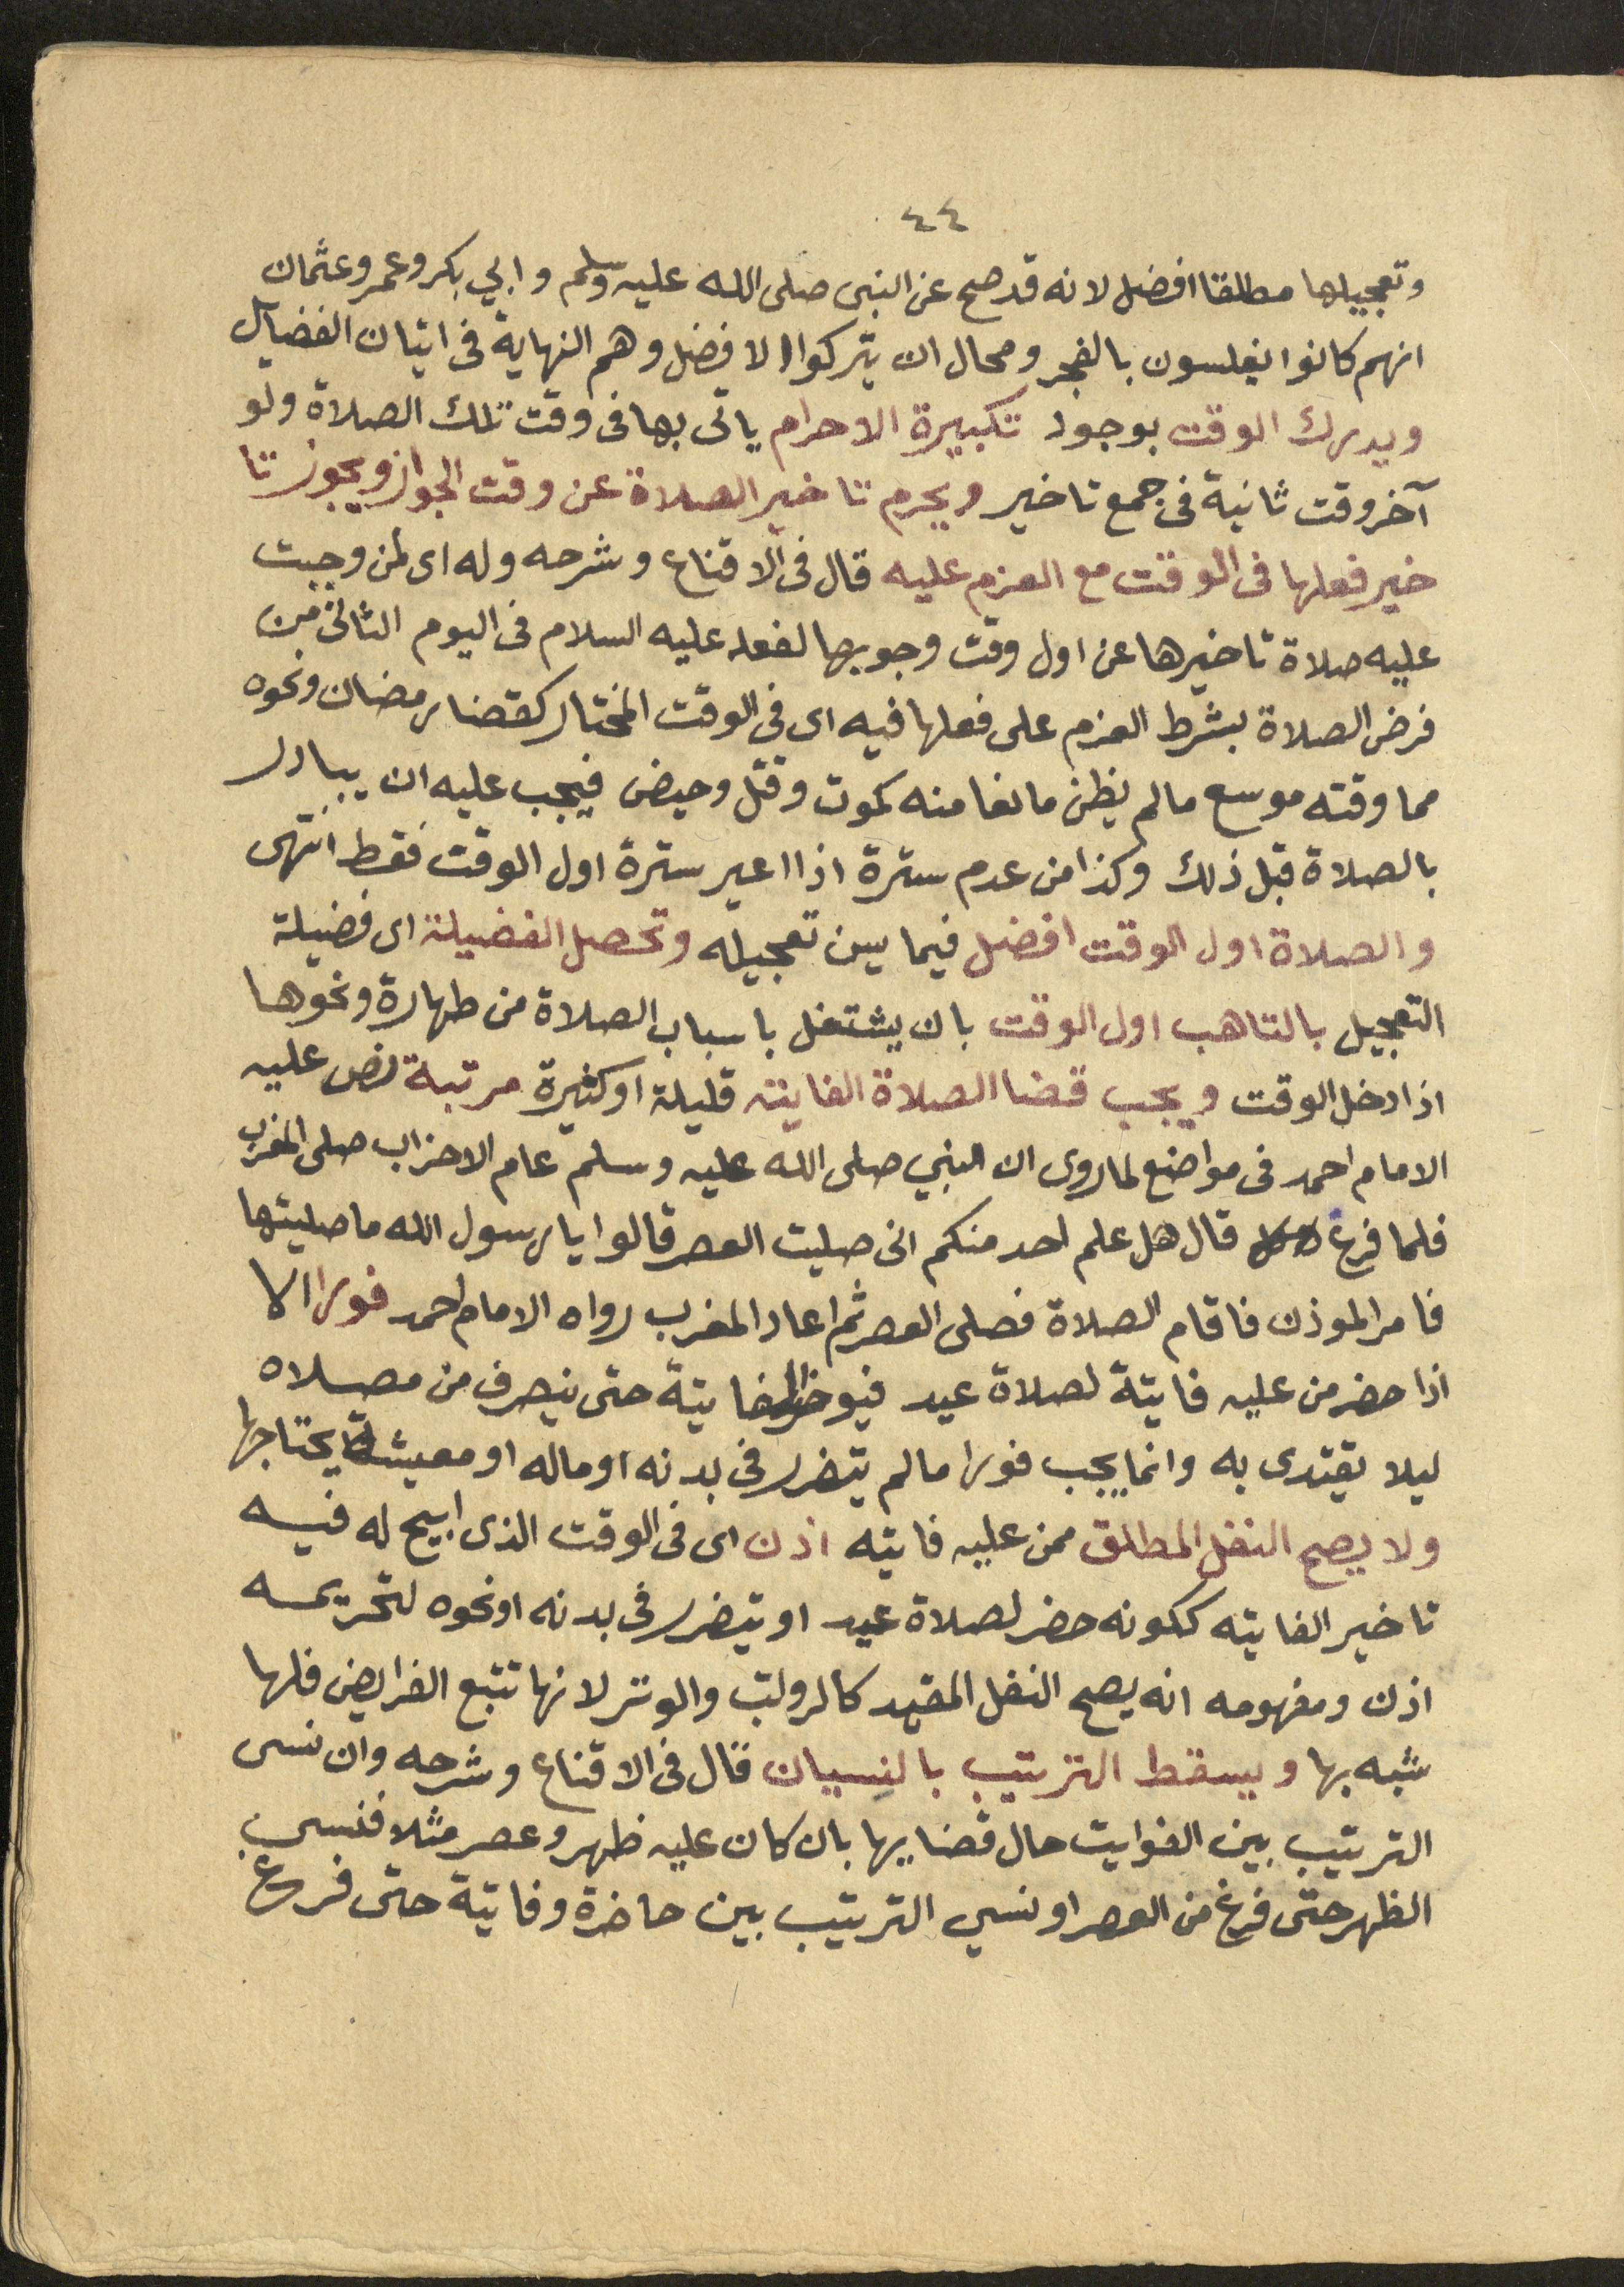 ٤٤
وتعجيلها مطلقا افضل لانه قد صح عن النبى صلى الله عليه وسلم وابي بكر وعمر وعثمان
انهم كانوا يغلسون بالفجر ومحال ان يتركوا الافضل وهم النهاية فى اتيان الفضايل
ويدرك الوقت بوجود تكبيرة الاحرام ياتى بها فى وقت تلك الصلاة ولو
آخر وقت ثانية فى جمع تاخير ويحرم تاخير الصلاة عن وقت الجواز ويجوز تا
خير فعلها فى الوقت مع العزم عليه قال فى الاقناع وشرحه وله اى لمن وجبت
عليه صلاة تاخيرها عن اول وقت وجوبها لفعله عليه السلام فى اليوم الثانى من
فرض الصلاة بشرط العزم على فعلها فيه اى فى الوقت المختار كقضا رمضان ونحوه
مما وقته موسع مالم يظن مانعا منه كموت وقتل وحيض فيجب عليه ان يبادر
بالصلاة قبل ذلك وكذا من عدم سترة اذا اعير سترة اول الوقت فقط انتهى
والصلاة اول الوقت افضل فيما يسن تعجيله وتحصل الفضيلة اى فضيلة
التعجيل بالتاهب اول الوقت بان يشتغل باسباب الصلاة من طهارة ونحوها
اذا دخل الوقت ويجب قضا الصلاة الفايته قليلة او كثيرة مرتبة نص عليه
الامام احمد فى مواضع لما روى ان النبي صلى الله عليه وسلم عام الاحزاب صلى المغرب
فلما فرغ قال هل علم احد منكم انى صليت العصر قالوا يا رسول الله ما صليتها
فامر الموذن فاقام الصلاة فصلى العصر ثم اعاد المغرب رواه الامام احمد فورا الا
اذا حضر من عليه فايتة لصلاة عيد فيوخر الفايتة حتى ينصرف من مصلاه
ليلا يقتدى به وانما يجب فورا مالم يتضرر فى بدنه او ماله او معيشة يحتاجها
ولا يصح النفل المطلق ممن عليه فايته اذن اى فى الوقت الذى ابيح له فيه
تاخير الفايته ككونه حضر لصلاة عيد او يتضرر فى بدنه او نحوه لتحريمه
اذن ومفهومه انه يصح النفل المقيد كالرواتب والوتر لانها تتبع الفرايض فلها
شبه بها ويسقط الترتيب بالنسيان قال فى الاقناع وشرحه وان نسى
الترتيب بين الفوايت حال قضايها بان كان عليه ظهر وعصر مثلا فنسي
الظهر حتى فرغ من العصر او نسي الترتيب بين حاضرة وفايتة حتى فرغ